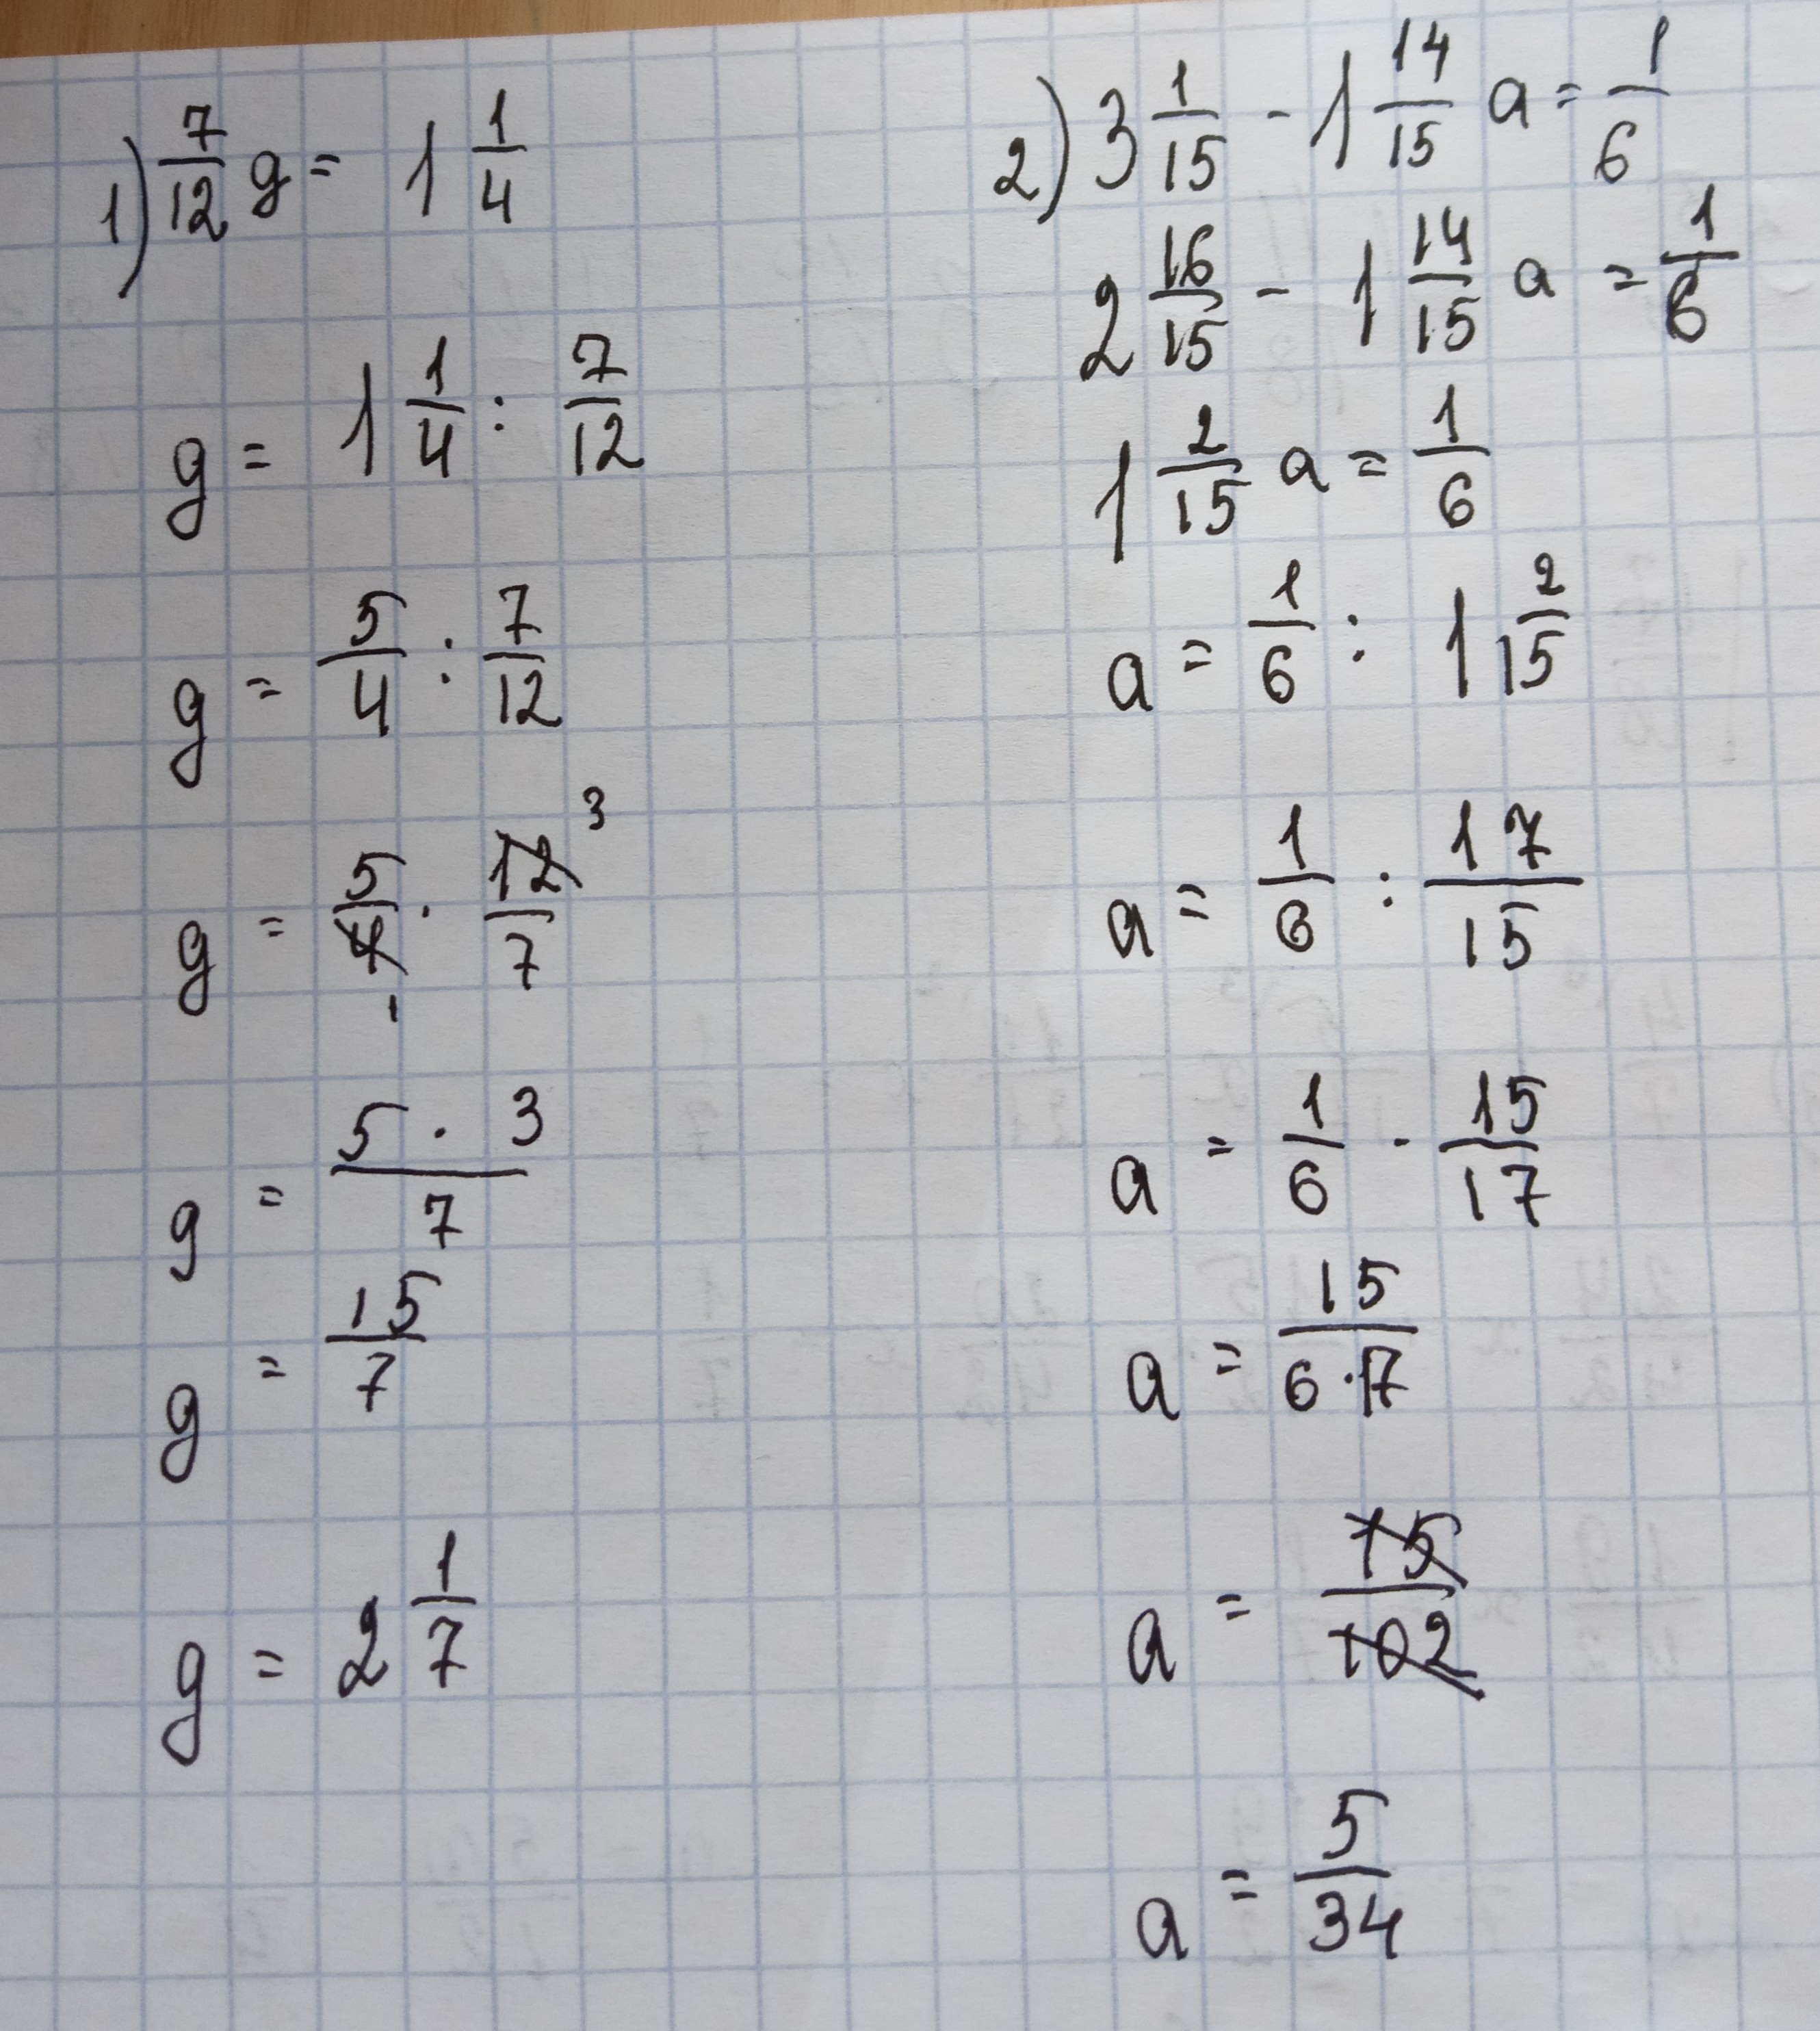 1) 7/12 g = 1 1/4
g = 1 1/4 : 7/12
g = 5/4 : 7/12
g = 5/4 1 · 12/7 3
g = 5 · 3 / 7
g = 15/7
g = 2 1/7
2) 3 1/15 - 1 14/15 a = 1/6
2 16/15 - 1 14/15 a = 1/6
1 2/15 a = 1/6
a = 1/6 : 1 2/15
a = 1/6 : 17/15
a = 1/6 · 15/17
a = 15 / 6·17
a = 15/102
a = 5/34